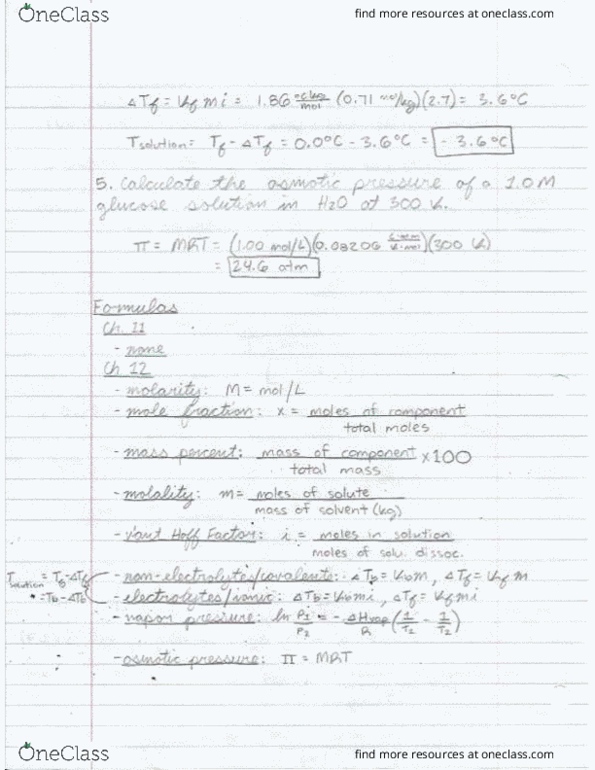 OneClass find more resources at oneclass.com
ΔTf = Kf m i = 1.86 °C kg/mol (0.71 mol/kg)(2.7) = 3.6°C
Tsolution = Tf - ΔTf = 0.0°C - 3.6°C = - 3.6°C
5. Calculate the osmotic pressure of a 1.0 M
glucose solution in H2O at 300 K.
π = MRT = (1.00 mol/L)(0.08206 L·atm/K·mol)(300 K)
= 24.6 atm
Formulas
Ch. 11
- none
Ch 12
- molarity: M = mol/L
- mole fraction: x = moles of component
total moles
- mass percent: mass of component x100
total mass
- molality: m = moles of solute
mass of solvent (kg)
- Van't Hoff Factor: i = moles in solution
moles of solu. dissoc.
Tsolution = Tf - ΔTf - non-electrolytes/covalents: ΔTb = Kbm, ΔTf = Kf m
= Tb - ΔTb - electrolytes/ionic: ΔTb = Kbmi, ΔTf = Kf mi
- vapor pressure: ln P1/P2 = - ΔHvap/R (1/T2 - 1/T2)
- osmotic pressure: π = MRT
OneClass find more resources at oneclass.com